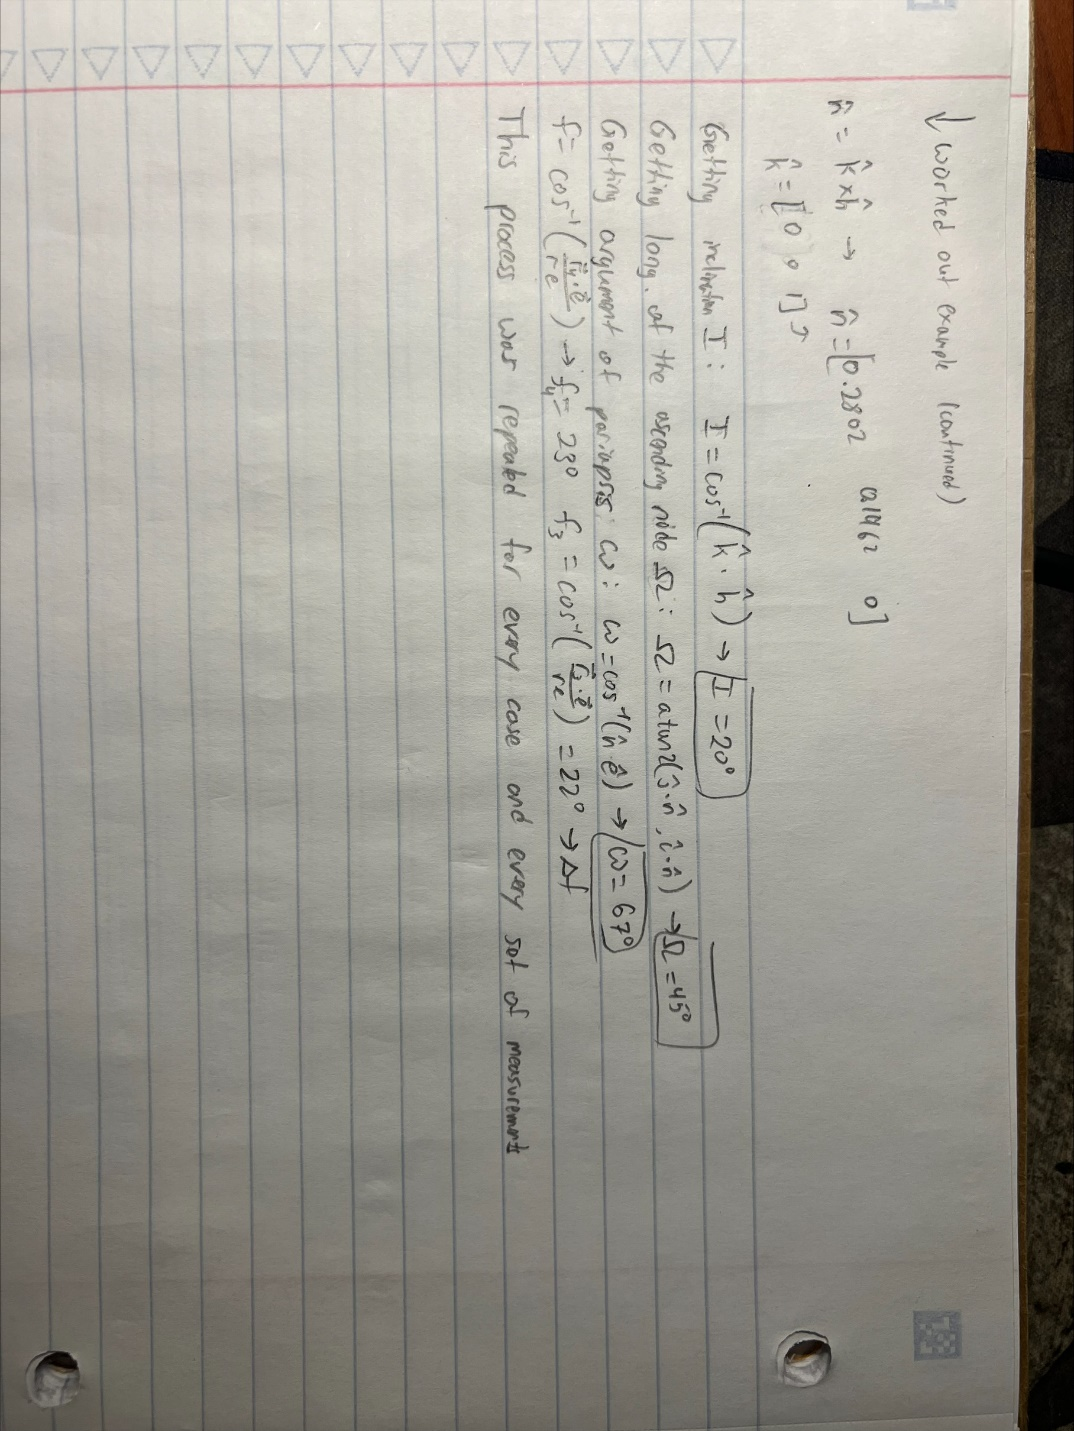 ↓ worked out example (continued)
n̂ = k̂ × ĥ → n̂ = [0.2802 0.1962 0]
k̂ = [0 0 1]↗
Getting inclination I: I = cos⁻¹(k̂ · ĥ) → I = 20°
Getting long. of the ascending node Ω: Ω = atan2(ĵ·n̂, î·n̂) → Ω = 45°
Getting argument of periapsis: ω: ω = cos⁻¹(n̂·ê) → ω = 67°
f = cos⁻¹(r⃗₄·e⃗/re) → f₄ = 23° f₃ = cos⁻¹(r⃗₃·e⃗/re) = 22° → Δf
This process was repeated for every case and every set of measurements